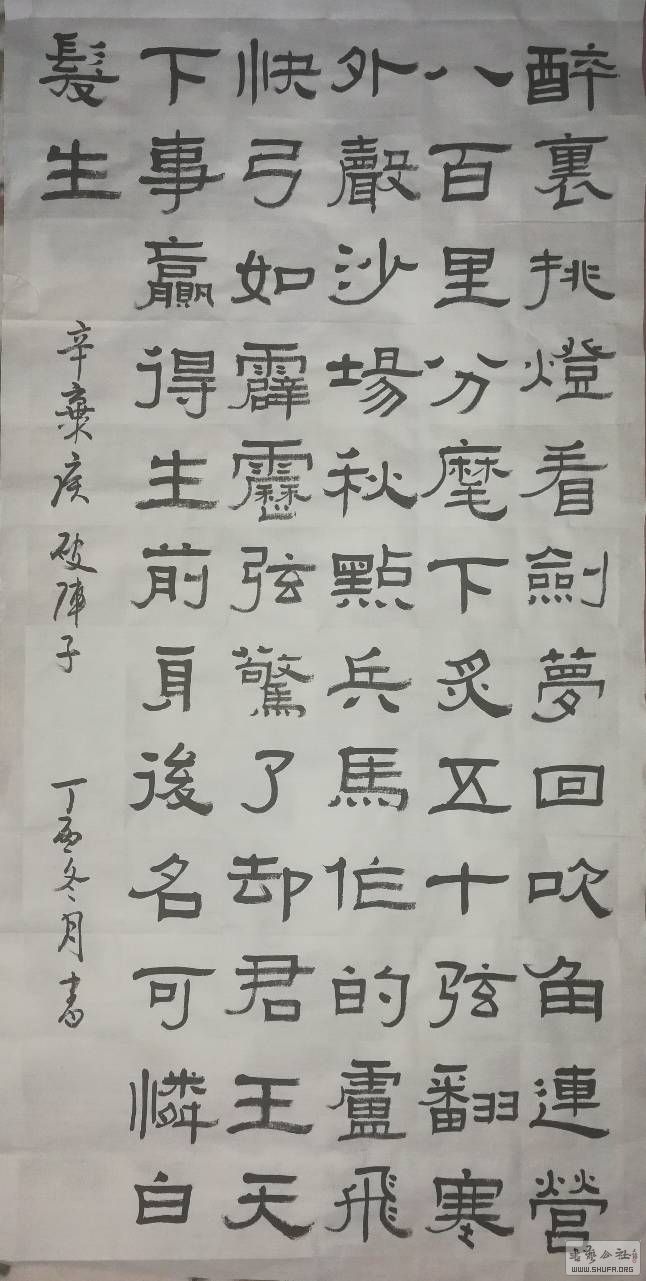 醉裏挑燈看劍夢回吹角連營
八百里分麾下炙五十弦翻塞
外聲沙場秋點兵馬作的盧飛
快弓如霹靂弦驚了却君王天
下事贏得生前身後名可憐白
髮生
辛棄疾 破陣子 丁酉冬月書
書藝公社
WWW.SHUFA.ORG